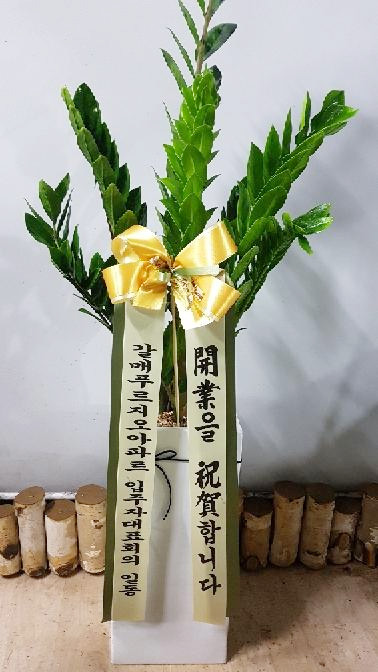 開業을 祝賀합니다
갈매푸르지오아파트 입주자대표회의 일동